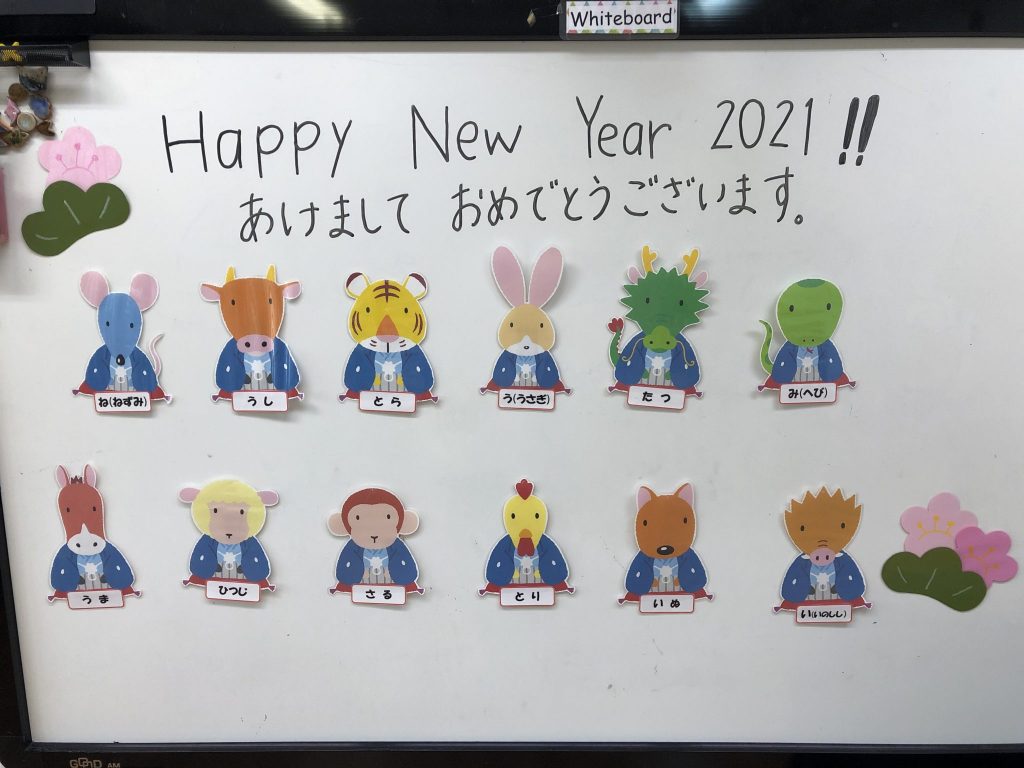 Whiteboard
Happy New Year 2021!!
あけまして おめでとうございます。
ね(ねずみ)
うし
とら
う(うさぎ)
たつ
み(へび)
うま
ひつじ
さる
とり
いぬ
い(いのしし)
GOOD AM